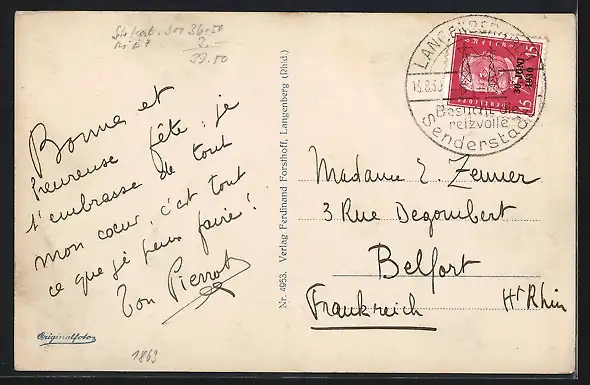 36-50
2.-
39.50
Bonne et
heureuse fête, je
t'embrasse de tout
mon cœur, c'est tout
ce que je peux faire!
Ton Pierrot
Originalfoto
1863
Nr. 4953. Verlag Ferdinand Forsthoff, Langenberg (Rhld.)
LANGENBERG
Besucht die
reizvolle
Senderstadt
15
30. JUNI
1930
15
Madame E. Zenner
3 Rue Degombert
Belfort
Frankreich Ht Rhin